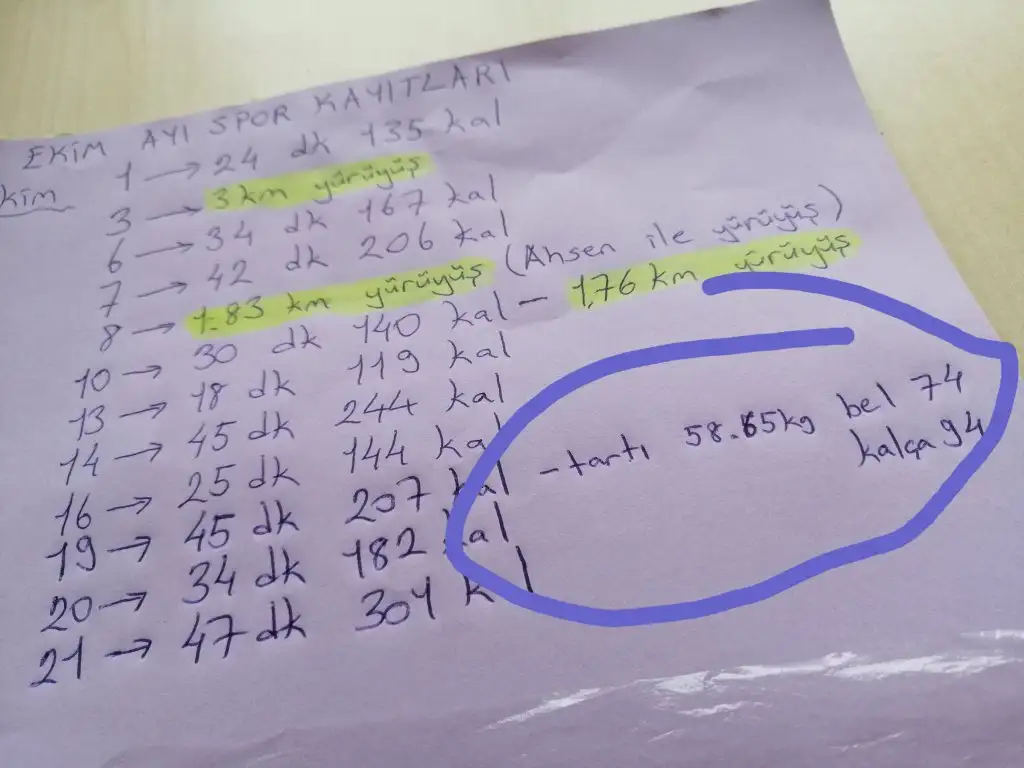 EKİM AYI SPOR KAYITLARI
kim 1 → 24 dk 135 kal
3 → 3 km yürüyüş
6 → 34 dk 167 kal
7 → 42 dk 206 kal
8 → 1.83 km yürüyüş (Ahsen ile yürüyüş)
10 → 30 dk 140 kal - 1,76 km yürüyüş
13 → 18 dk 119 kal
14 → 45 dk 244 kal
16 → 25 dk 144 kal
19 → 45 dk 207 kal - tartı 58.65kg bel 74
kalça 94
20 → 34 dk 182 kal
21 → 47 dk 304 k l